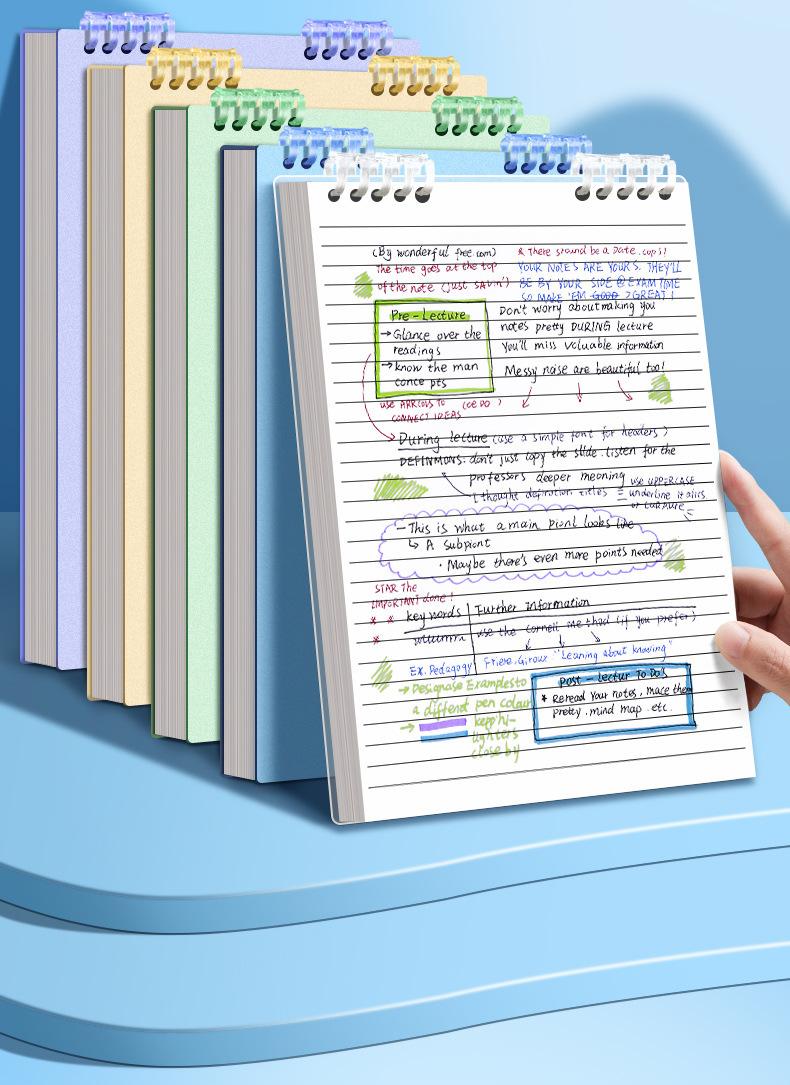 (By wonderful free.com)
The time goes at the top
of the note (just SAVIN')
& There should be a Date.
YOUR NOTES ARE YOURS. THEY'LL
BE BY YOUR SIDE @ EXAM TIME
SO MAKE 'EM GOOD GREAT!
Pre-Lecture
→ Glance over the
readings
→ know the man
conce pts
Don't worry about making you
notes pretty DURING lecture
You'll miss valuable information
Messy noise are beautiful too!
USE ARROWS TO
CONNECT IDEAS
During lecture (use a simple font for headers)
DEFINMONS: don't just copy the slide. listen for the
professors deeper meoning
(thought defination titles
use UPPERCASE
underline italics
- This is what a main piont looks like
↳ A subpiont
· Maybe there's even more points needed
STAR The
IMPORTANT done!
* *
*
key words
Further Information
use the cornell method (if you prefer)
Ex. Pedagogy
Friere, Giroux "Leaning about knowing"
→ Designase Examplesto
a differnt pen colour
→ kepp hi-
lighters
close by
post - lectur To Do's
* Reread Your notes, mace them
pretty, mind map. etc.